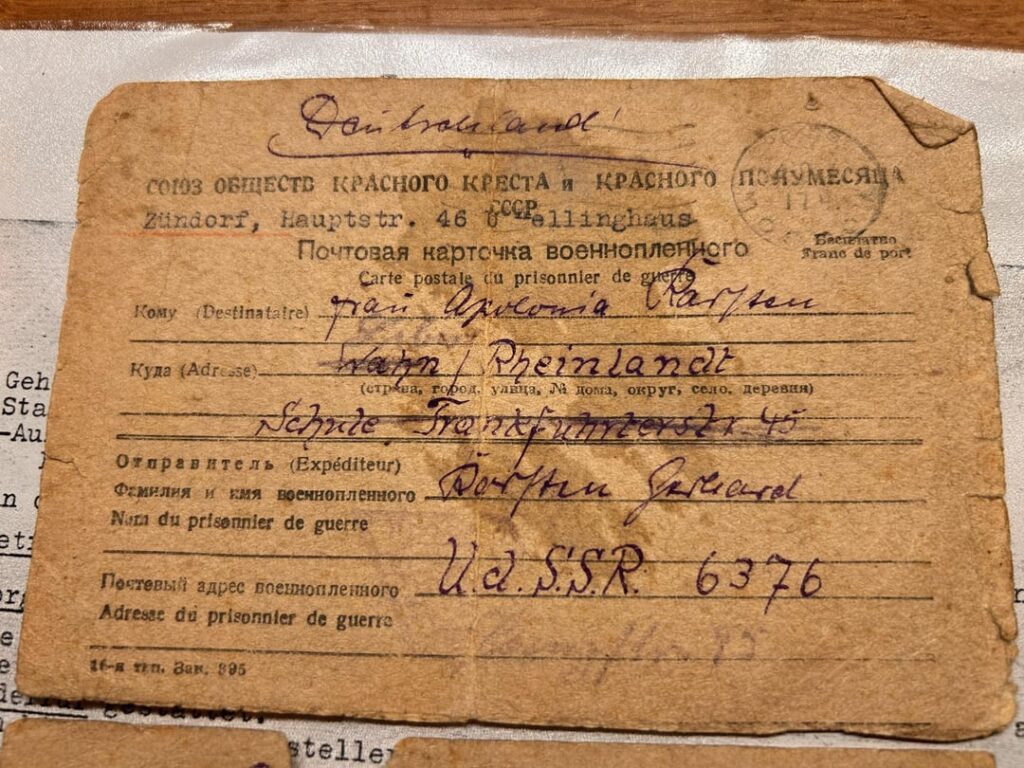 Deutschland
СОЮЗ ОБЩЕСТВ КРАСНОГО КРЕСТА и КРАСНОГО ПОЛУМЕСЯЦА
СССР
Zündorf, Hauptstr. 46 ellinghaus
Почтовая карточка военнопленного
Бесплатно
Franc de port
Carte postale du prisonnier de guerre
Кому (Destinataire) Frau Apolonia
Куда (Adresse) Wahn / Rheinlandt
(страна, город, улица, № дома, округ, село, деревня)
Schule Frankfuhrterstr. 45
Отправитель (Expéditeur)
Фамилия и имя военнопленного Gerhard
Nom du prisonnier de guerre
Почтовый адрес военнопленного U.d.S.S.R. 6376
Adresse du prisonnier de guerre
16-я тип. Зак. 395
Geh
Sta
-Au
gestattet.
stellen